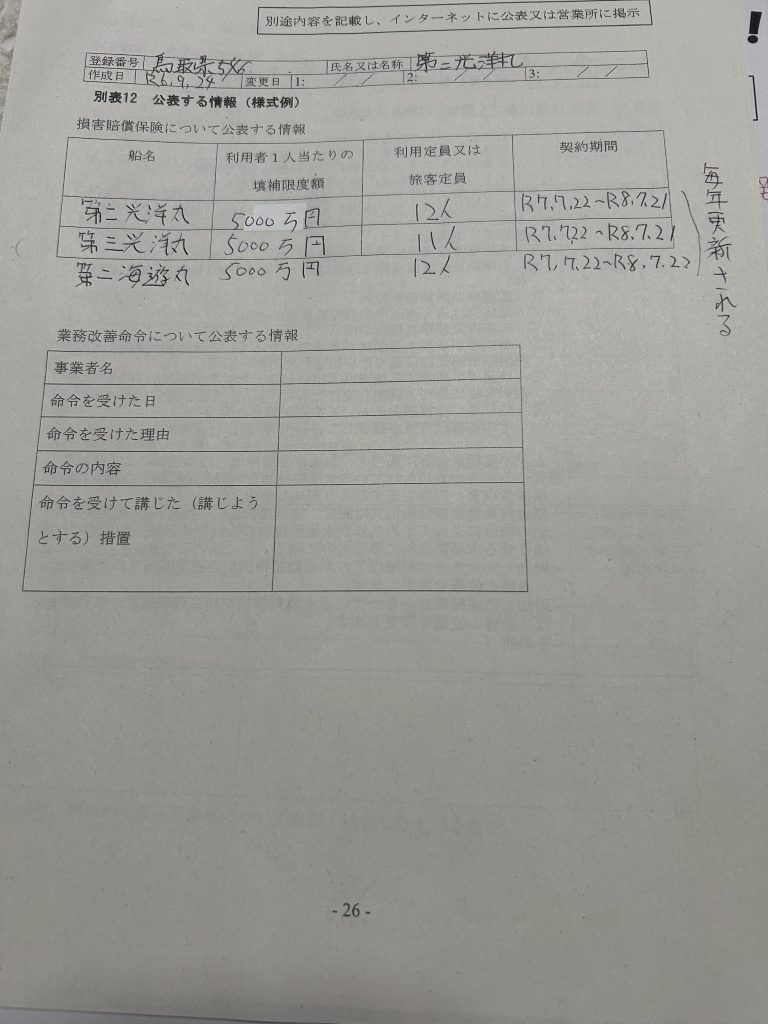 別途内容を記載し、インターネットに公表又は営業所に掲示
登録番号 鳥取県546 氏名又は名称 第二光洋丸
作成日 R6.9.24 変更日 1: / / 2: / / 3: / /
別表12 公表する情報（様式例）
損害賠償保険について公表する情報
船名 利用者１人当たりの填補限度額 利用定員又は旅客定員 契約期間
第二光洋丸 5000万円 12人 R7.7.22~R8.7.21
第三光洋丸 5000万円 11人 R7.7.22~R8.7.21
第二海遊丸 5000万円 12人 R7.7.22~R8.7.22
毎年更新される
業務改善命令について公表する情報
事業者名
命令を受けた日
命令を受けた理由
命令の内容
命令を受けて講じた（講じよう
とする）措置
- 26 -